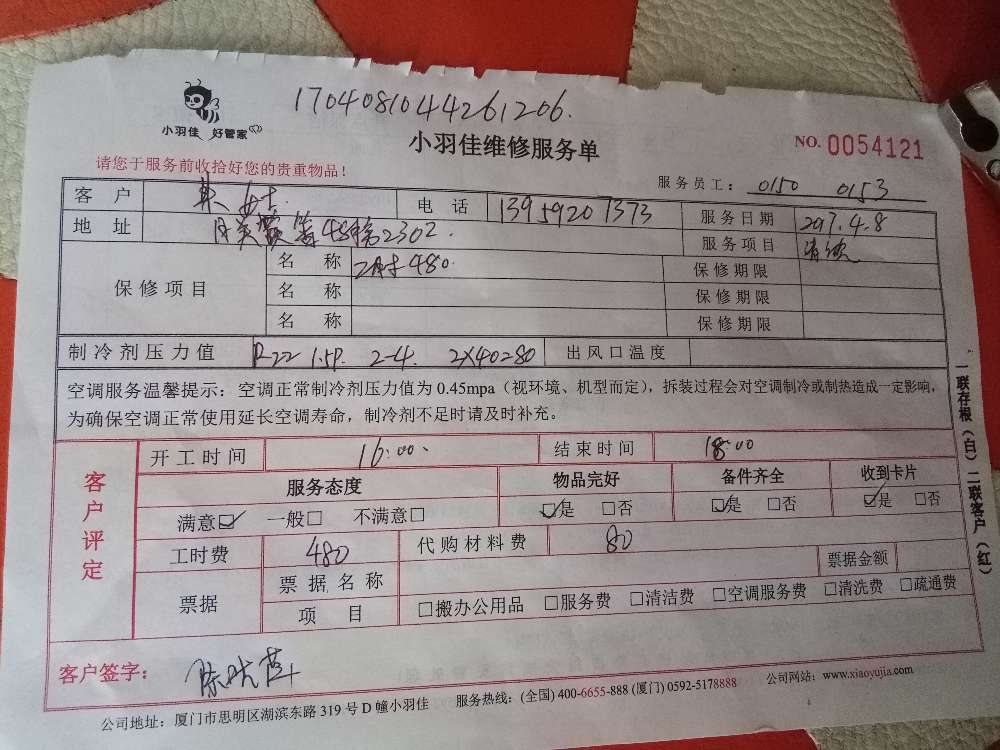 1704081044261206.
小羽佳 好管家
小羽佳维修服务单
NO. 0054121
请您于服务前收拾好您的贵重物品！
服务员工： 0150 0153
客 户 女士 电 话 13959207373 服务日期 2017.4.8
地 址 48 2302. 服务项目 清洗
保修项目
名 称 480. 保修期限
名 称 保修期限
名 称 保修期限
制冷剂压力值 R22 1.5P. 2-4. 2X40=80 出风口温度
空调服务温馨提示：空调正常制冷剂压力值为 0.45mpa（视环境、机型而定），拆装过程会对空调制冷或制热造成一定影响，
为确保空调正常使用延长空调寿命，制冷剂不足时请及时补充。
客户评定
开工时间 16:00 结束时间 18:00
服务态度 物品完好 备件齐全 收到卡片
满意☑ 一般□ 不满意□ ☑是 □否 ☑是 □否 ☑是 □否
工时费 480 代购材料费 80
票据 票据名称 票据金额
项 目 □搬办公用品 □服务费 □清洁费 □空调服务费 □清洗费 □疏通费
客户签字：
公司地址：厦门市思明区湖滨东路 319 号 D 幢小羽佳 服务热线：(全国) 400-6655-888 (厦门) 0592-5178888 公司网站：www.xiaoyujia.com
一联存根（白）二联客户（红）